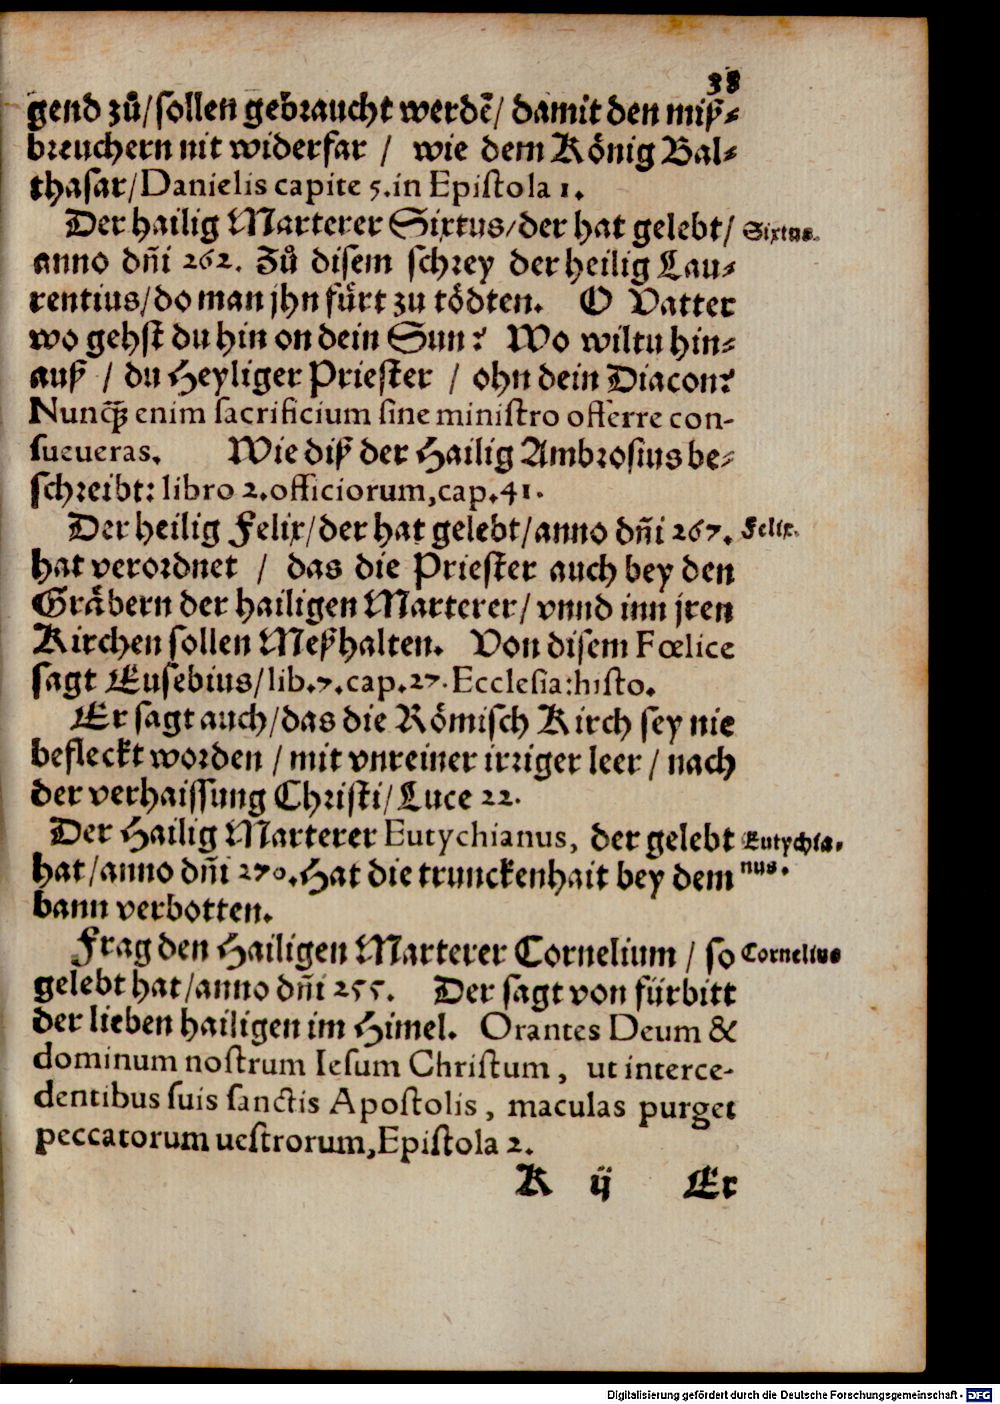 38
gend zů/sollen gebraucht werdē/ damit den miß-
breuchern nit widerfar / wie dem König Bal-
thasar/Danielis capite 5.in Epistola 1.
Der hailig Marterer Sixtus/der hat gelebt/ Sixtus.
anno dñi 262. Zů disem schrey der heilig Lau-
rentius/do man jhn fůrt zu tödten. O Vatter
wo gehst du hin on dein Sun? Wo wiltu hin-
auß / du Heyliger Priester / ohn dein Diacon?
Nunqꝫ enim sacrificium sine ministro offerre con-
sueueras. Wie diß der Hailig Ambrosius be-
schreibt: libro 2.officiorum,cap.41.
Der heilig Felix/der hat gelebt/anno dñi 267. Felix.
hat verordnet / das die Priester auch bey den
Gräbern der hailigen Marterer/ vnnd inn jren
Kirchen sollen Meßhalten. Von disem Fœlice
sagt Eusebius/lib.7.cap.27.Ecclesia:histo.
Er sagt auch/das die Römisch Kirch sey nie
befleckt worden / mit vnreiner irriger leer / nach
der verhaissung Christi/Luce 22.
Der Hailig Marterer Eutychianus, der gelebt Eutychia-
hat/anno dñi 270.Hat die trunckenhait bey dem nus.
bann verbotten.
Frag den Hailigen Marterer Cornelium / so Cornelius
gelebt hat/anno dñi 255. Der sagt von fürbitt
der lieben hailigen im Himel. Orantes Deum &
dominum nostrum Iesum Christum, ut interce-
dentibus suis sanctis Apostolis, maculas purget
peccatorum uestrorum,Epistola 2.
K ij Er
Digitalisierung gefördert durch die Deutsche Forschungsgemeinschaft - DFG